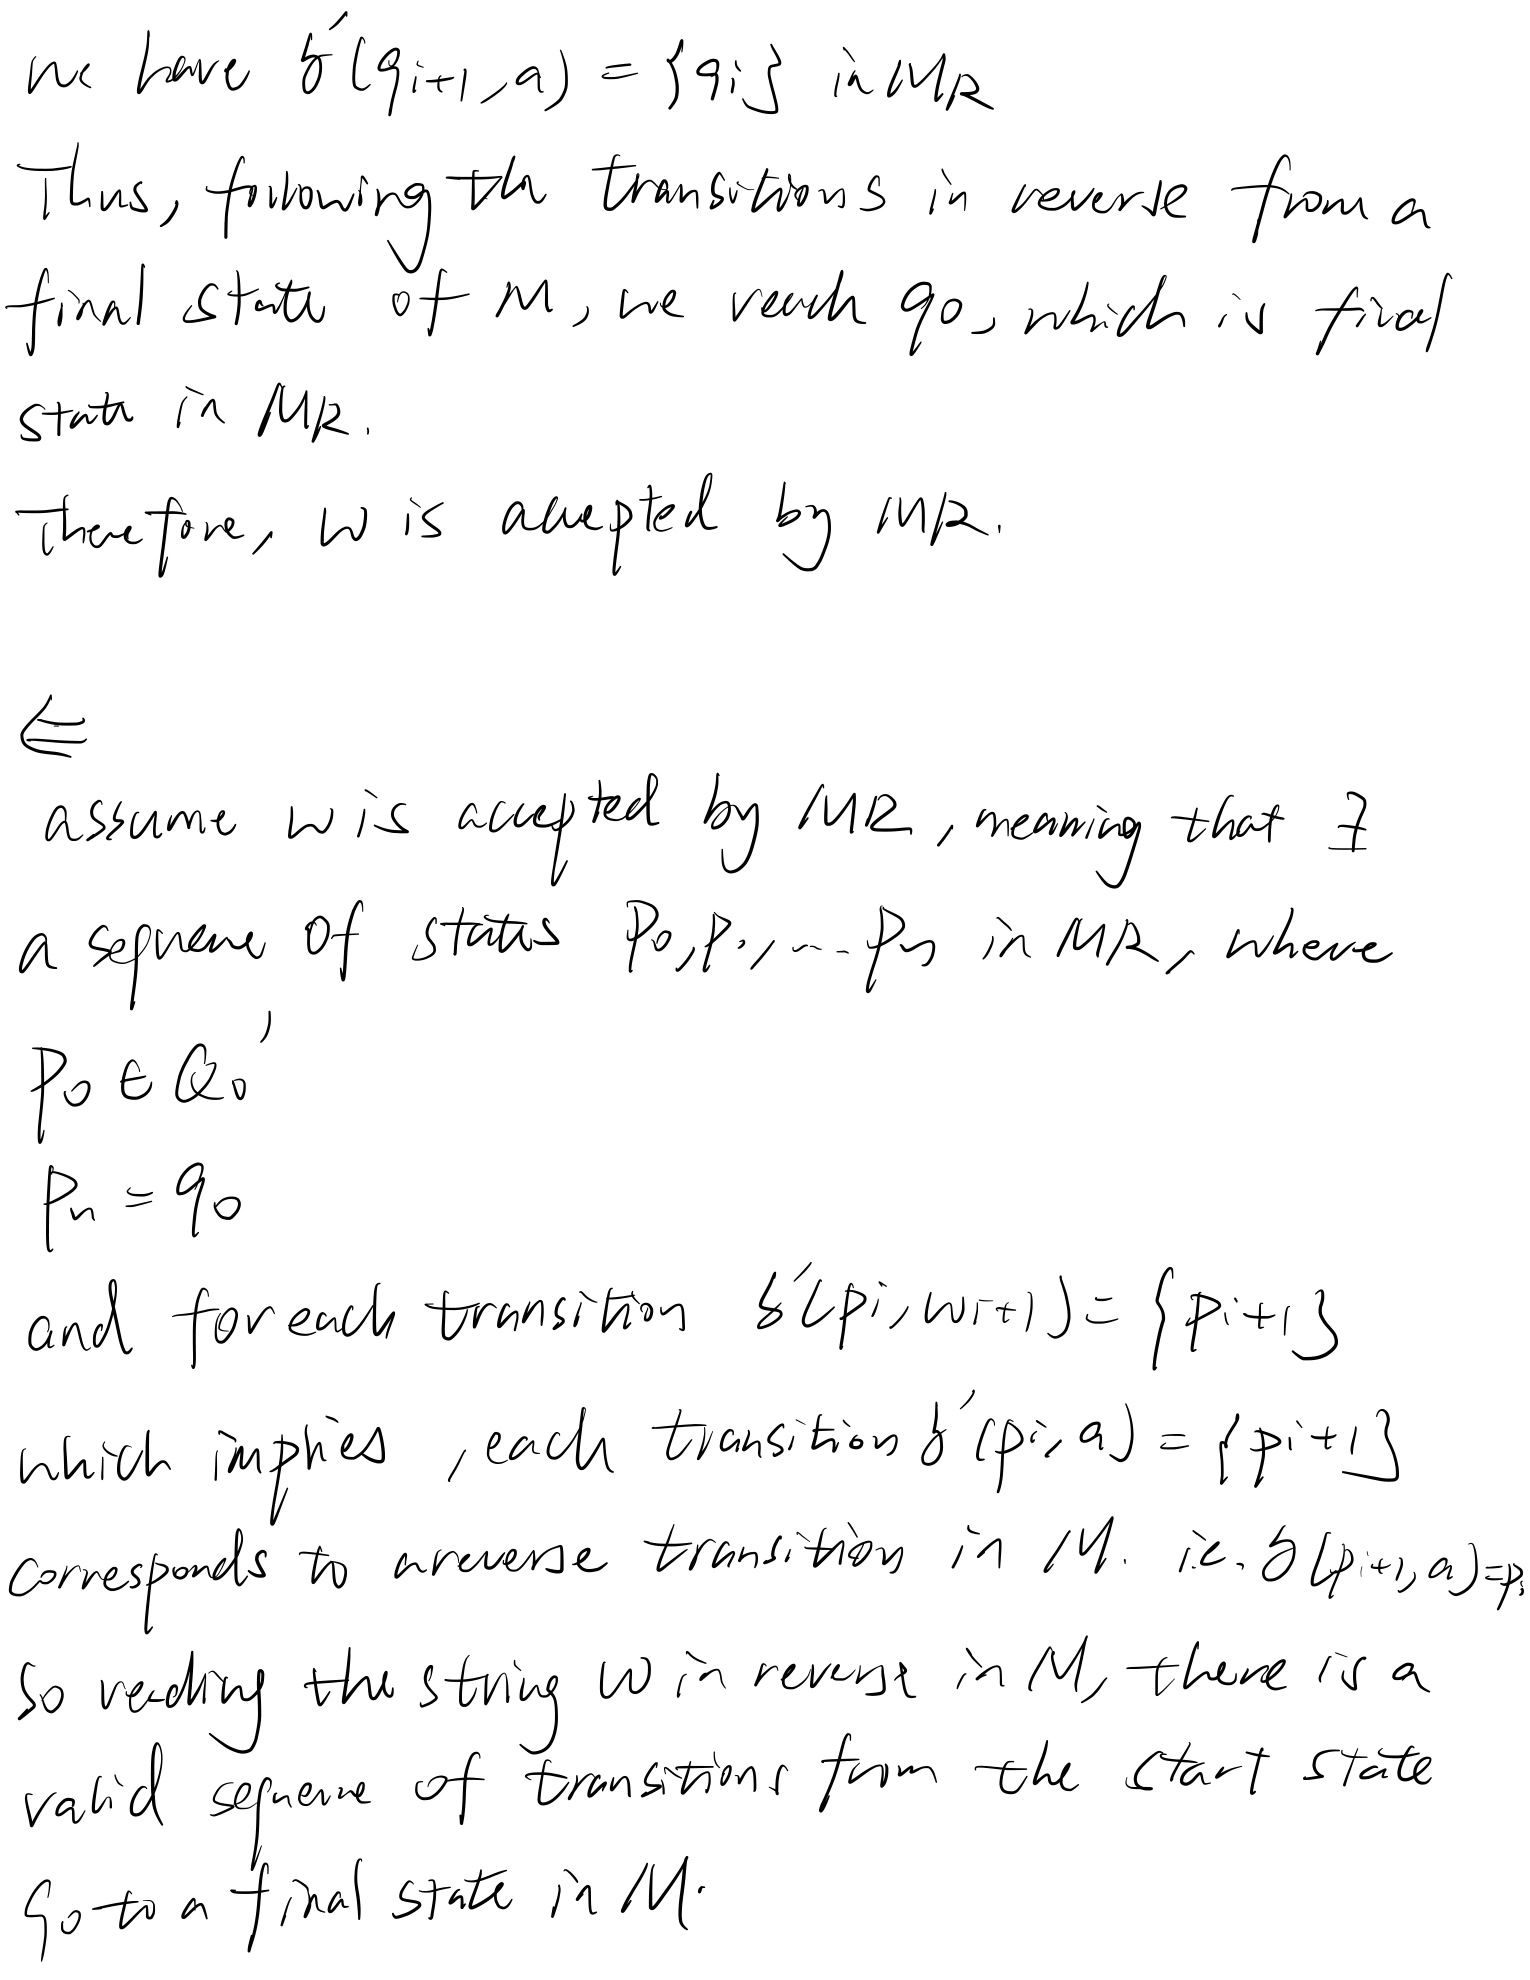 we have δ'(qi+1, a) = {qi} in MR
Thus, following the transitions in reverse from a
final state of M, we reach q0, which is final
state in MR.
Therefore, w is accepted by MR.
⇐
assume w is accepted by MR, meaning that ∃
a sequence of states P0, P1, ... Pn in MR, where
P0 ∈ Q0'
Pn = q0
and for each transition δ'(pi, wi+1) = {pi+1}
which implies, each transition δ'(pi, a) = {pi+1}
corresponds to a reverse transition in M. i.e. δ(pi+1, a) = pi
So reading the string w in reverse in M, there is a
valid sequence of transitions from the start state
q0 to a final state in M.